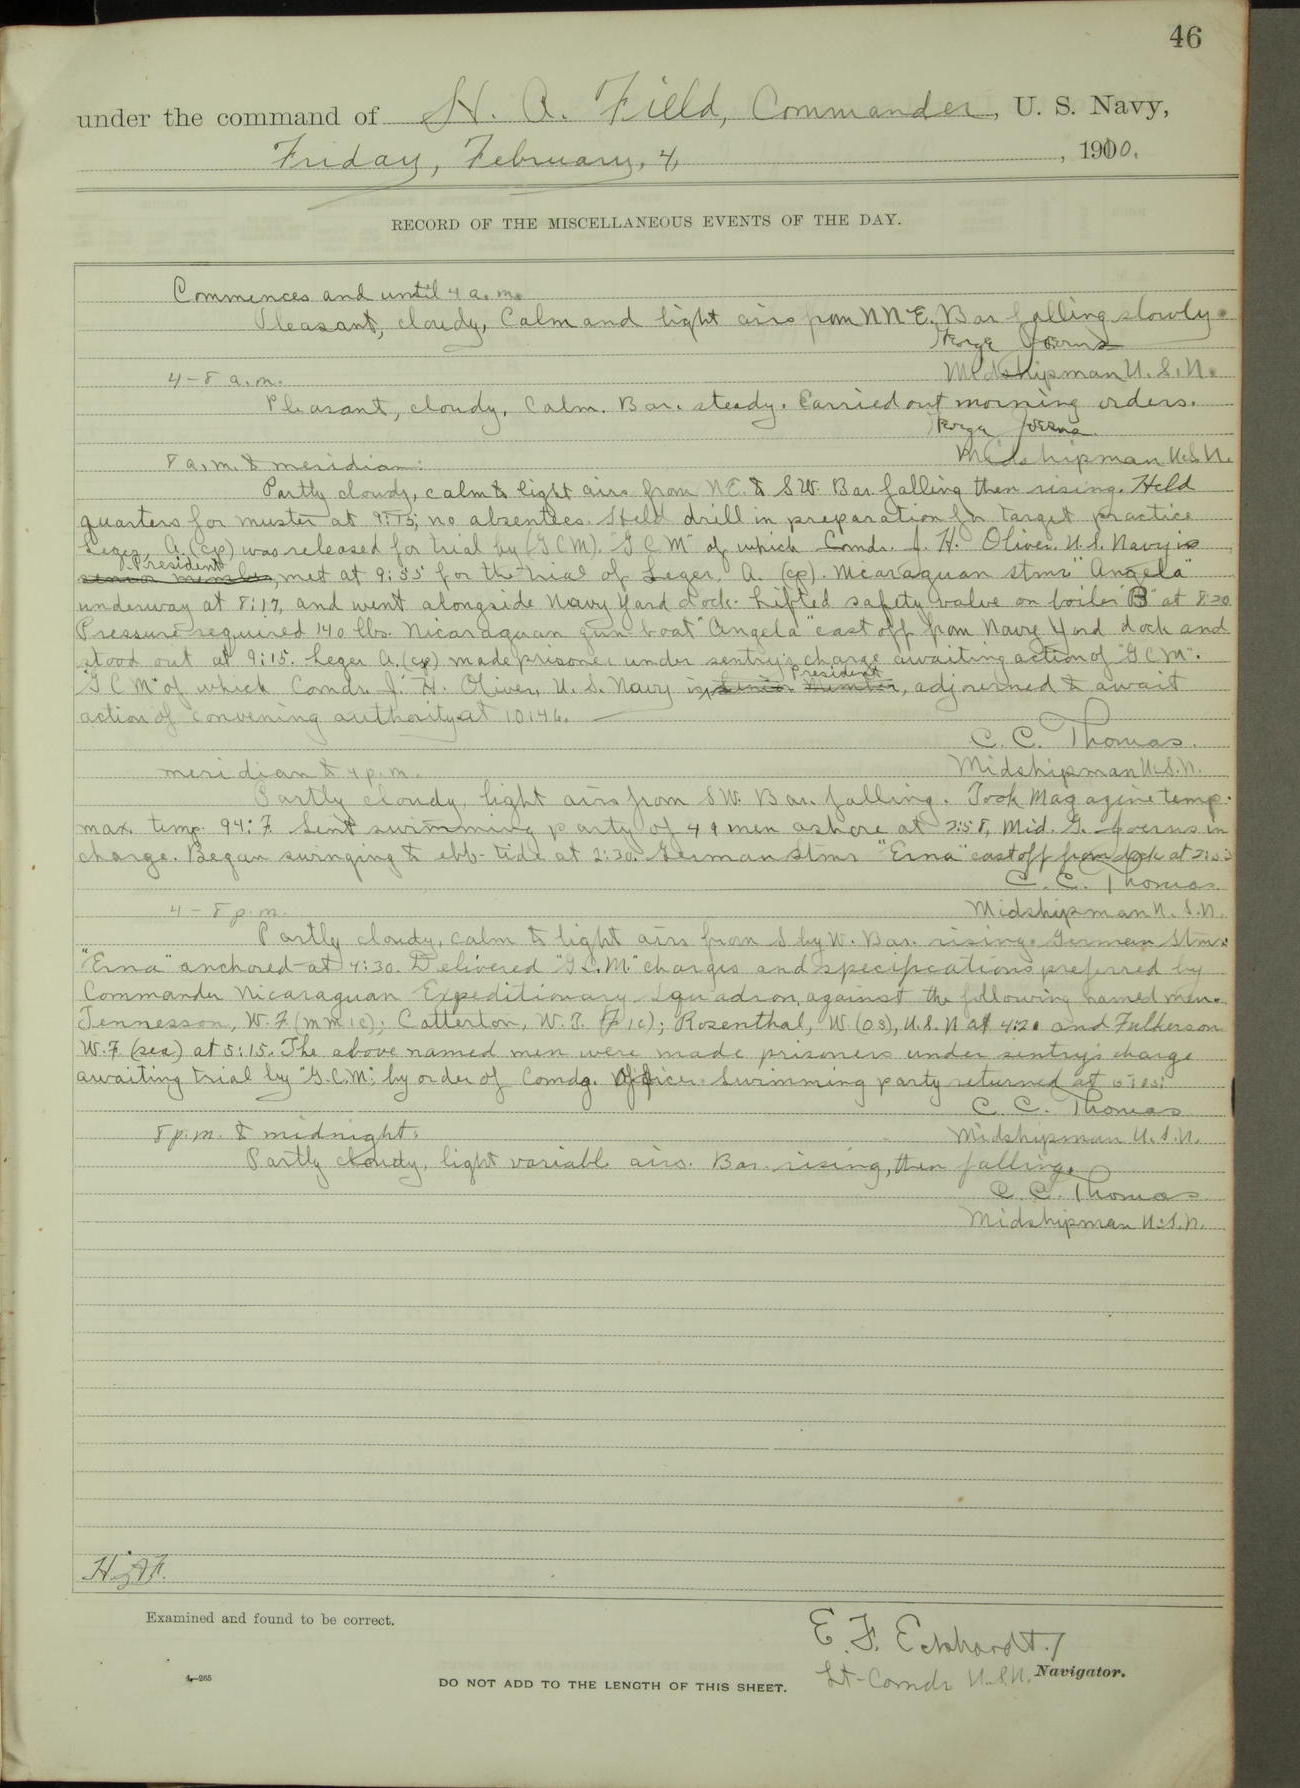 46
under the command of H. A. Field, Commander, U. S. Navy,
Friday, February, 4, 1910.
RECORD OF THE MISCELLANEOUS EVENTS OF THE DAY.
Commences and until 4 a.m.
Pleasant, cloudy, Calm and light airs from NNE. Bar falling slowly.
George Joerns
Midshipman U.S.N.
4-8 a.m.
Pleasant, cloudy, Calm. Bar. steady. Carried out morning orders.
George Joerns
Midshipman U.S.N.
8 a.m. to meridian:
Partly cloudy, calm to light airs from NE. to SW. Bar. falling then rising. Held
quarters for muster at 9:15; no absentees. Held drill in preparation for target practice
Leger, A. (cp) was released for trial by (GCM). "GCM" of which Comdr. J. H. Oliver, U.S. Navy is
President
senior member, met at 9:55 for the trial of Leger, A. (cp). Nicaraguan stmr "Angela"
underway at 8:17, and went alongside Navy Yard dock. Lifted safety valve on boiler "B" at 8:20
Pressure required 140 lbs. Nicaraguan gun boat "Angela" cast off from Navy Yard dock and
stood out at 9:15. Leger A. (cp) made prisoner under sentry's charge awaiting action of "GCM".
President
"GCM" of which Comdr. J. H. Oliver, U.S. Navy is senior member, adjourned to await
action of convening authority at 10:46.
C. C. Thomas.
Midshipman U.S.N.
meridian to 4 p.m.
Partly cloudy, light airs from SW. Bar. falling. Took Magazine temp.
max. temp. 94: F. Sent swimming party of 49 men ashore at 2:58, Mid. G. Joerns in
charge. Began swinging to ebb-tide at 2:30. German Stmr "Erna" cast off from dock at
C. C. Thomas
Midshipman U.S.N.
4-8 p.m.
Partly cloudy, calm to light airs from S by W. Bar. rising. German Stmr.
"Erna" anchored at 4:30. Delivered "G.C.M." charges and specifications preferred by
Commander Nicaraguan Expeditionary Squadron, against the following named men.
Tennesson, W.F. (MM1C); Catterton, W.T. (F1C); Rosenthal, W. (OS), U.S.N at 4:20 and Fulkerson
W.F. (sea) at 5:15. The above named men were made prisoners under sentry's charge
awaiting trial by "G.C.M." by order of Comdg. Officer. Swimming party returned at
C. C. Thomas
Midshipman U.S.N.
8 p.m. to midnight.
Partly cloudy, light variable airs. Bar. rising, then falling.
C. C. Thomas
Midshipman U.S.N.
H.A.F.
Examined and found to be correct.
E. F. Eckhardt.
Lt-Comdr U.S.N. Navigator.
4-265
DO NOT ADD TO THE LENGTH OF THIS SHEET.